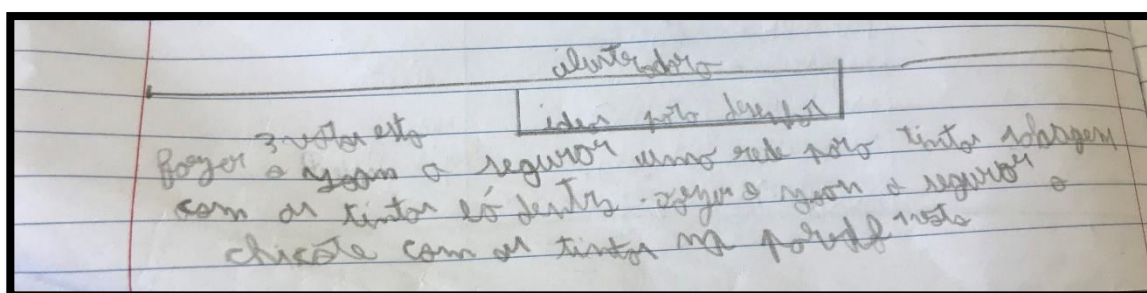 ilustradora
ideas para desenhar
3 votos esta
fazer o yoan a segurar uma rede para tintas
com as tintas lá dentro. o yoan a segurar o
chicote com as tintas na parede